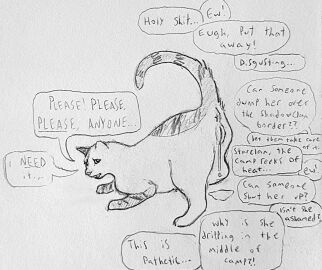 Holy shit...
Ew!
Eugh, Put that
away!
Disgusting...
Can someone
dump her over
the Shadowclan
border??
let them take care
of it.
Starclan, the
camp reeks of
heat...
Ew!
Can someone
shut her up?
isn't she
ashamed?
why is she
dripping in the
middle of
camp?!
This is
Pathetic...
PLEASE! PLEASE,
PLEASE, ANYONE...
I NEED
it...